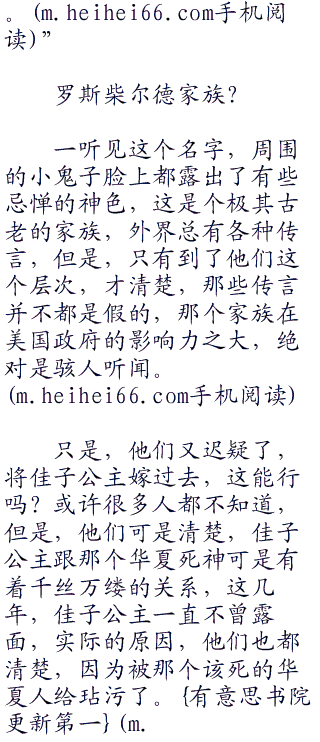 。(m.heihei66.com手机阅
读)”
罗斯柴尔德家族?
一听见这个名字，周围
的小鬼子脸上都露出了有些
忌惮的神色，这是个极其古
老的家族，外界总有各种传
言，但是，只有到了他们这
个层次，才清楚，那些传言
并不都是假的，那个家族在
美国政府的影响力之大，绝
对是骇人听闻。
(m.heihei66.com手机阅读)
只是，他们又迟疑了，
将佳子公主嫁过去，这能行
吗？或许很多人都不知道，
但是，他们可是清楚，佳子
公主跟那个华夏死神可是有
着千丝万缕的关系，这几
年，佳子公主一直不曾露
面，实际的原因，他们也都
清楚，因为被那个该死的华
夏人给玷污了。{有意思书院
更新第一}(m.